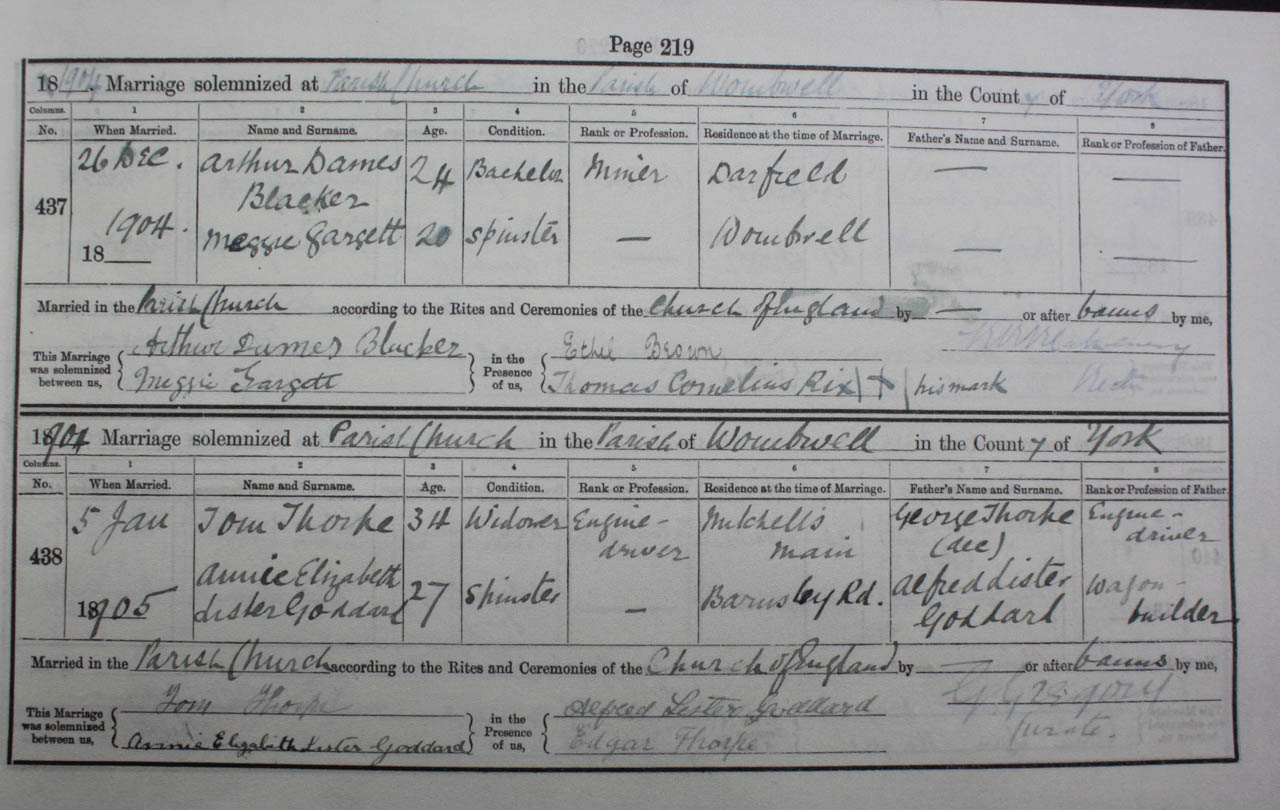 Page 219
1904. Marriage solemnized at Parish Church in the Parish of Wombwell in the County of York
Columns. 1 2 3 4 5 6 7 8
No. When Married. Name and Surname. Age. Condition. Rank or Profession. Residence at the time of Marriage. Father's Name and Surname. Rank or Profession of Father.
26 Dec. Arthur Dames 24 Bachelor Miner Darfield — —
437 Blacker
1904. Meggie Gargett 20 Spinster — Wombwell — —
18
Married in the Parish Church according to the Rites and Ceremonies of the Church of England by — or after banns by me,
This Marriage was solemnized between us, Arthur Dames Blacker in the Presence of us, Ethel Brown
Meggie Gargett Thomas Cornelius Rix X his mark
1904 Marriage solemnized at Parish Church in the Parish of Wombwell in the County of York
Columns. 1 2 3 4 5 6 7 8
No. When Married. Name and Surname. Age. Condition. Rank or Profession. Residence at the time of Marriage. Father's Name and Surname. Rank or Profession of Father.
5 Jan Tom Thorpe 34 Widower Engine-driver Mitchell's main George Thorpe (dec) Engine-driver
438
1905 Annie Elizabeth Lister Goddard 27 Spinster — Barnsley Rd. Alfred Lister Goddard Wagon-builder
Married in the Parish Church according to the Rites and Ceremonies of the Church of England by — or after banns by me,
This Marriage was solemnized between us, Tom Thorpe in the Presence of us, Alfred Lister Goddard G. Gregory
Annie Elizabeth Lister Goddard Edgar Thorpe Curate.